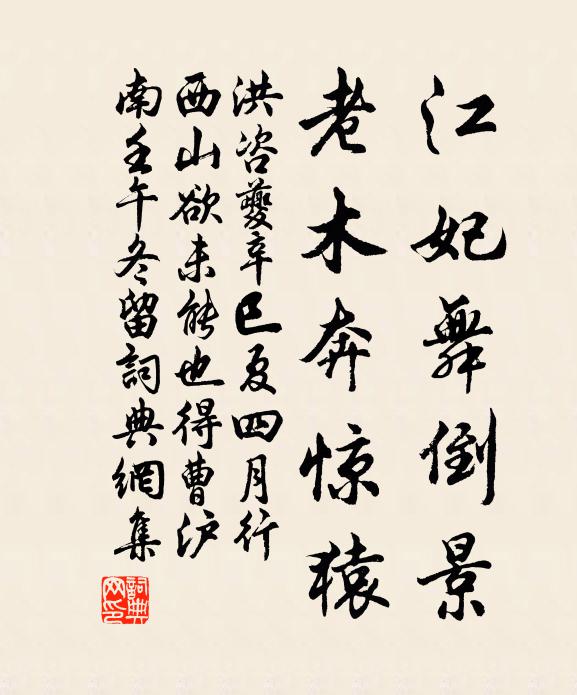 江妃舞倒景
老木奔惊猿
洪咨夔辛巳夏四月行
西山欲未能也得曹沪
南壬午冬留詞典網集
詞典网印